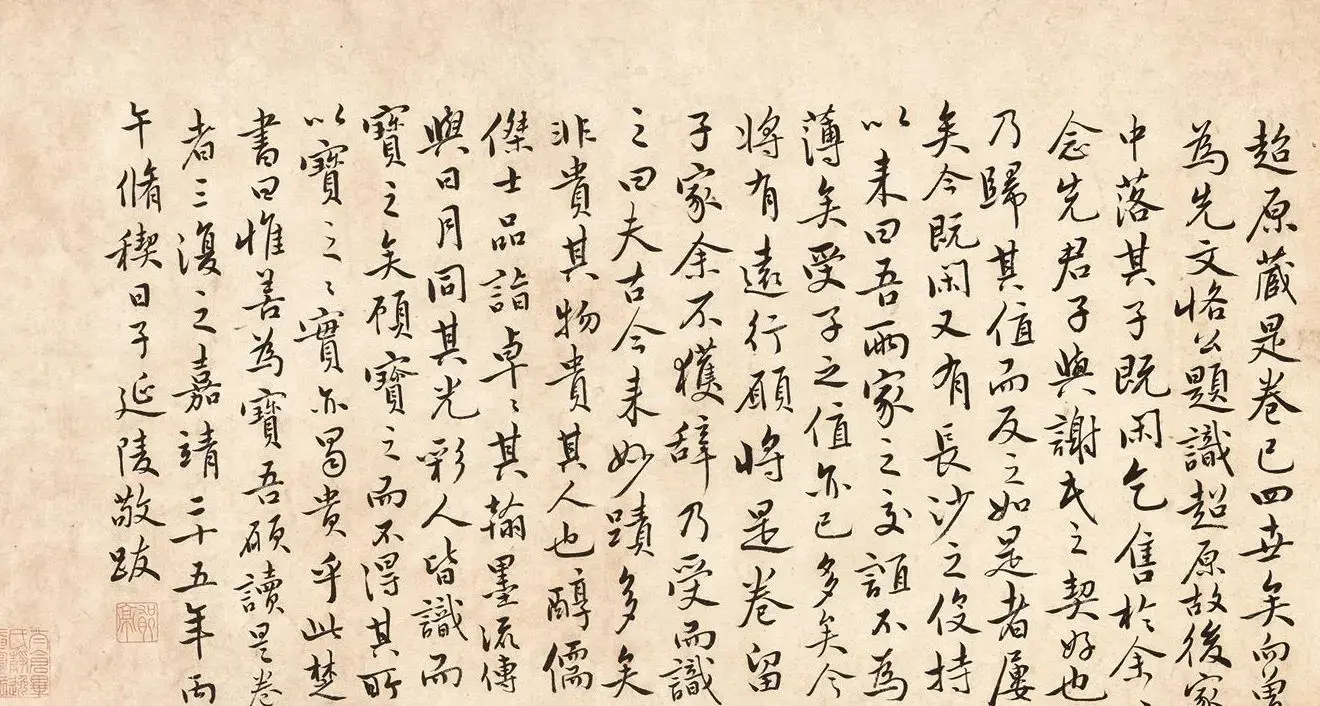 超原藏是卷已四世矣而曽
為先文恪公題識超原故後家
中落其子既閑乞售於余
念先君子與謝氏之契好也
乃歸其值而反之如是者屢
矣今既閑又有長沙之役持
以来曰吾兩家之交誼不為
薄矣受子之值亦已多矣今
將有遠行願將是卷留
子家余不獲辞乃受而識
之曰夫古今来妙蹟多矣
非貴其物貴其人也醇儒
傑士品詣卓〻其翰墨流傳
與日月同其光彩人皆識而
寶之矣顧寶之而不得其所
以寶之〻實亦曷貴乎此楚
書曰惟善為寶吾願讀是卷
者三復之嘉靖二十五年丙
午脩稧日子延陵敬跋